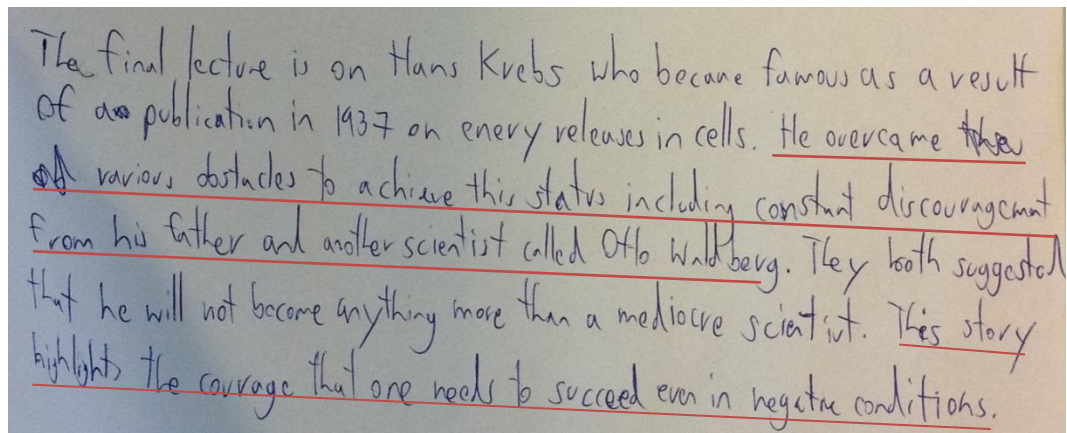 The final lecture is on Hans Krebs who became famous as a result
of a publication in 1937 on enery releases in cells. He overcame
various obstacles to achieve this status including constant discouragement
from his father and another scientist called Otto Waldberg. They both suggested
that he will not become anything more than a mediocre scientist. This story
highlights the courage that one needs to succeed even in negative conditions.